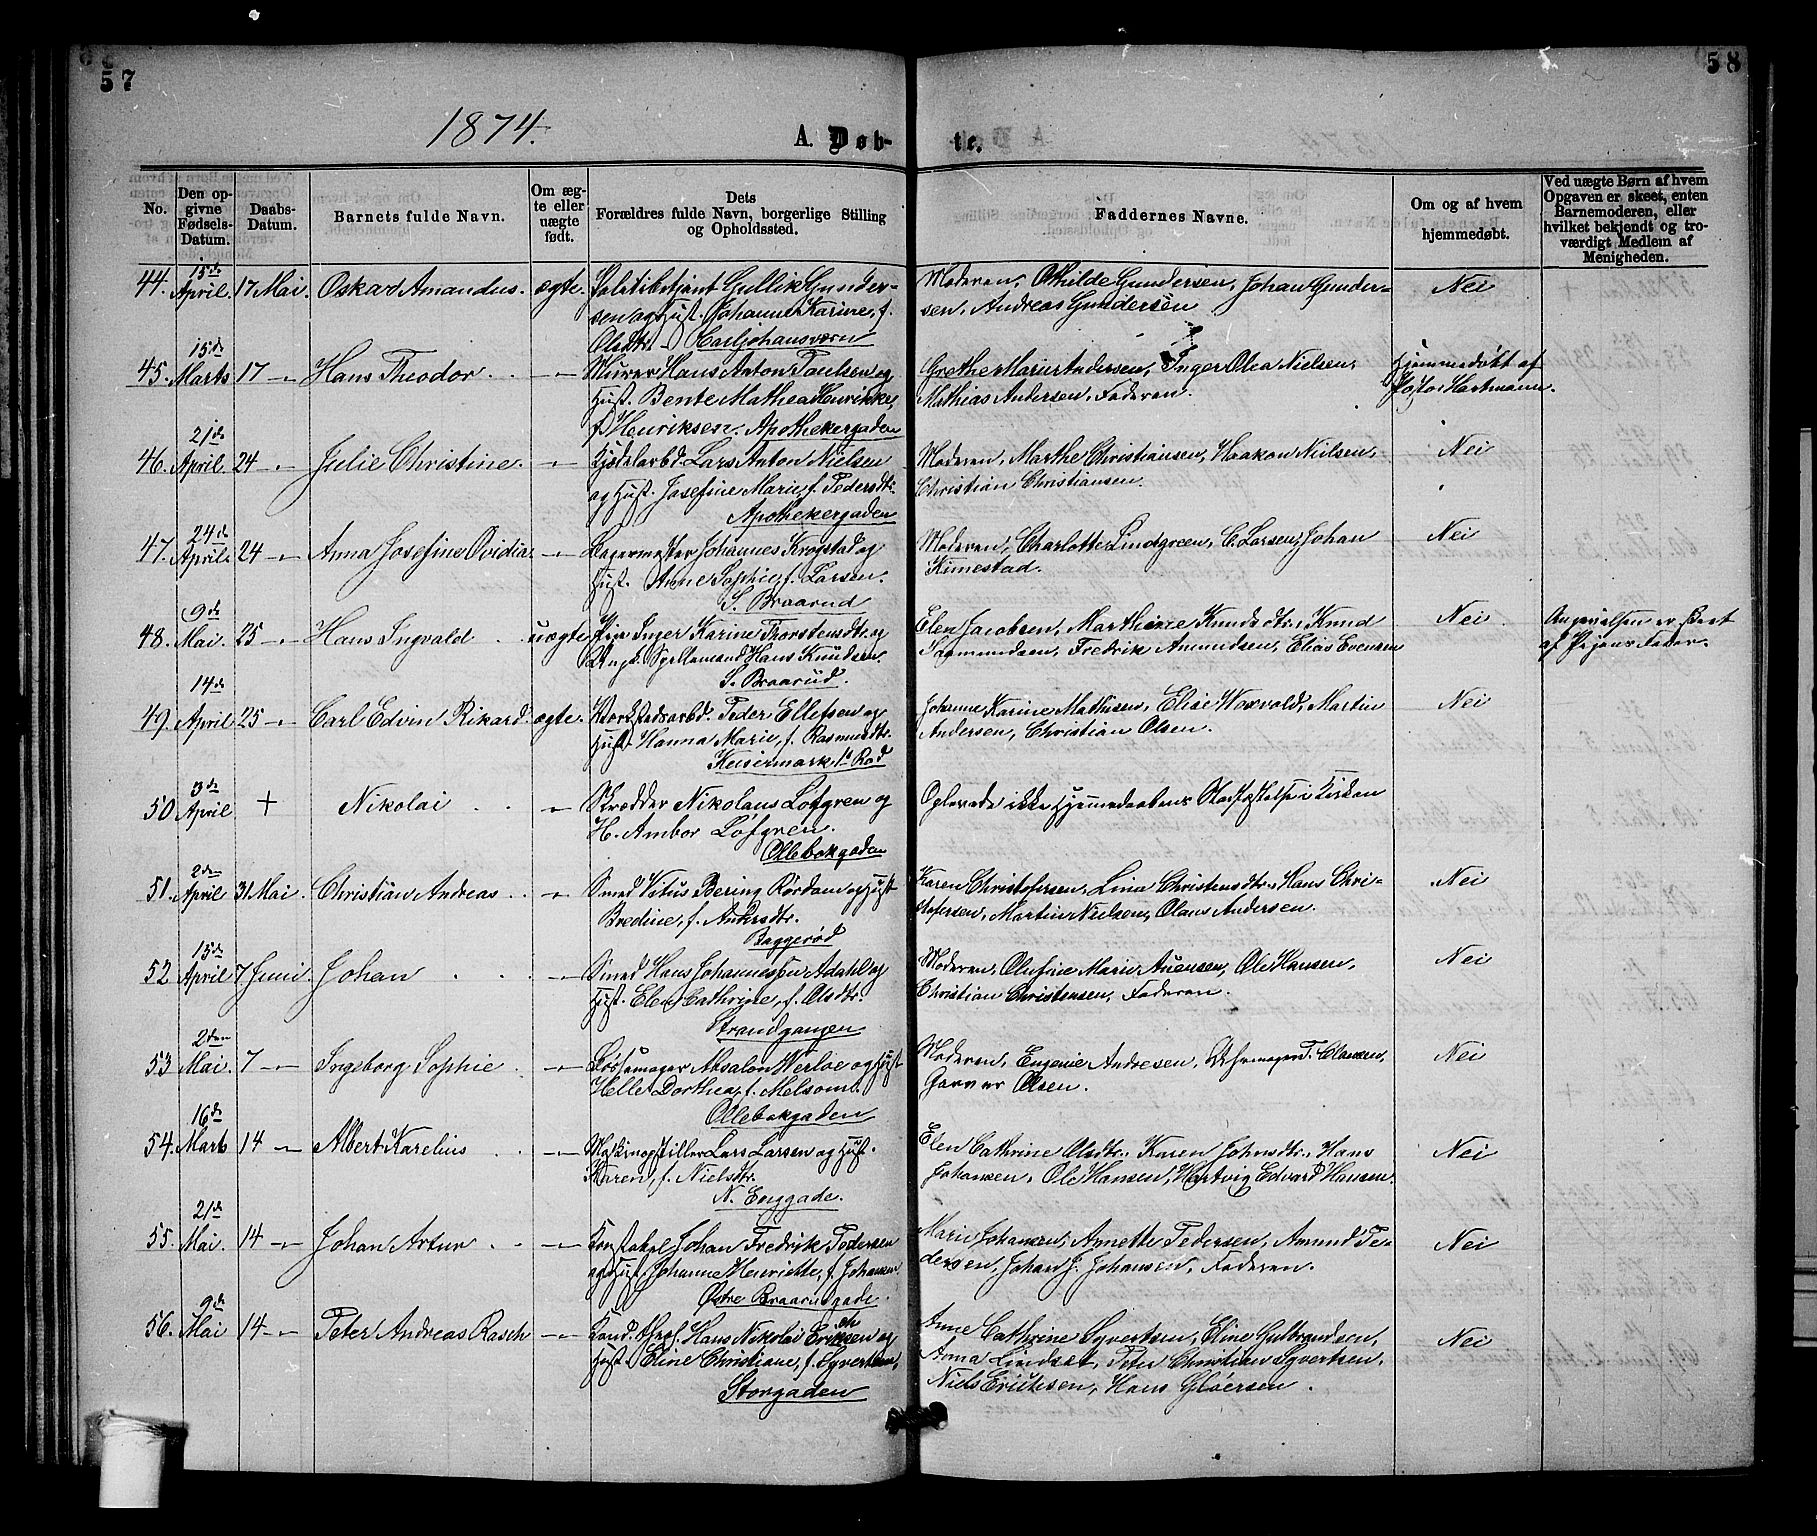 57
58
1874.
A. Døb-
te.
No.
Den op-
givne
Fødsels-
Datum.
Daabs-
Datum.
Barnets fulde Navn.
Om æg-
te eller
uægte
født.
Dets
Forældres fulde Navn, borgerlige Stilling
og Opholdssted.
Faddernes Navne.
Om og af hvem
hjemmedøbt.
Ved uægte Børn af hvem
Opgaven er skeet, enten
Barnemoderen, eller
hvilket bekjendt og tro-
værdigt Medlem af
Menigheden.
44. 15de April. 17 Mai. Oskar Amandus. ægte.
Politibetjent Gullik Gunder-
sen og Hust. Johanne Karine, f.
Olsdtr. Carljohansværn
Moderen, Othilde Gundersen, Johan Gunder-
sen, Andreas Gundersen
Nei
45. 15de Marts 17 -"- Hans Theodor -"-
Murer Hans Anton Paulsen og
Hust. Bente Mathea Henrikke,
f. Henriksen. Apothekergaden
Grethe Marie Andersen, Inger Olea Nielsen,
Mathias Andersen, Faderen.
Hjemmedøbt af
Hartmann.
46. 21de April. 24 -"- Julie Christine. -"-
Lars Anton Nielsen
og Hust. Josefine Marie, f. Pedersdtr.
Apothekergaden
Moderen, Marthe Christiansen, Haakon Nielsen,
Christian Christiansen.
Nei
47. 24de April. 24 -"- Anna Josefine Ovidia -"-
Bagermester Johannes Krogstad og
Hust. Anne Sophie, f. Larsen.
S. Braarud
Moderen, Charlotte Lindgreen, C. Larsen, Johan
Kimestad.
Nei
48. 9de Mai. 25 -"- Hans Ingvald uægte
Pige Inger Karine Thorstensdtr. og
Ungk. Spellemand Hans Knudsen.
S. Braarud.
Elen Jacobsen, Marthine Knudsdtr., Knud
Fredrik Amundsen, Elias Evensen
Nei
Angivelsen er skeet
af Pigens Fader.
49. 14de April 25 -"- Carl Edvin Rikard. ægte.
Værkstedsarbd. Peder Ellefsen og
Hust. Hanna Marie, f. Rasmusdtr.
Keisermark, 1e Rod
Johanne Karine Mathisen, Elise Woxvold, Martin
Andersen, Christian Olsen.
Nei
50. 3de April + Nikolai -"-
Skrædder Nikolaus Löfgren og
H. Ambor Löfgren.
Ollebakgaden
Oplevede ikke Hjemmedaabens Stadfæstelse i Kirken
51. 2den April 31 Mai. Christian Andreas -"-
Smed Vitus Bering Rørdam og Hust
Bredine, f. Andersdtr.
Baggerød
Karen Christofersen, Lina Christensdtr., Hans Chri-
stofersen, Martin Nielsen, Olaus Andersen.
Nei
52 13de April 7 Juni. Johan -"-
Smed Hans Johannessen Adahl og
Hust. Elen Cathrine, f. Olsdtr.
Strandgangen
Moderen, Olufine Marie Auensen, Ole Hansen,
Christian Christensen, Faderen.
Nei
53 2den Mai. 7 -"- Ingeborg Sophie -"-
Bøssemager Absalon Werløe og Hust
Helle Dorthea, f. Melsom.
Ollebakgaden
Moderen, Eugenie Andresen, T. Clausen,
Garver Olsen.
Nei
54. 16de Marts 14 -"- Albert Karelius -"-
Maskinopstiller Lars Larsen og Hust.
Karen, f. Nielsdtr.
N. Enggade.
Elen Cathrine Olsdtr., Karen Johnsdtr., Hans
Johansen, Ole Hansen, Hartvig Edvard Hansen.
Nei
55. 21de Mai. 14 -"- Johan Artur -"-
Konstabel Johan Fredrik Pedersen
og Hust. Johanne Henriette, f. Johansen
Østre Braarudgade.
Marie Johansen, Annette Pedersen, Amund Pe-
dersen, Johan J. Johansen, Faderen.
Nei
56. 9de Mai 14 -"- Peter Andreas Rasch -"-
Hans Nikolai Eriksen og
Hust. Eline Christiane, f. Syvertsen,
Storgaden
Anne Cathrine Syvertsen, Eline Gulbrandsen,
Anna Lindset, Peter Christian Syvertsen,
Niels Erichsen, Hans Gløersen.
Nei